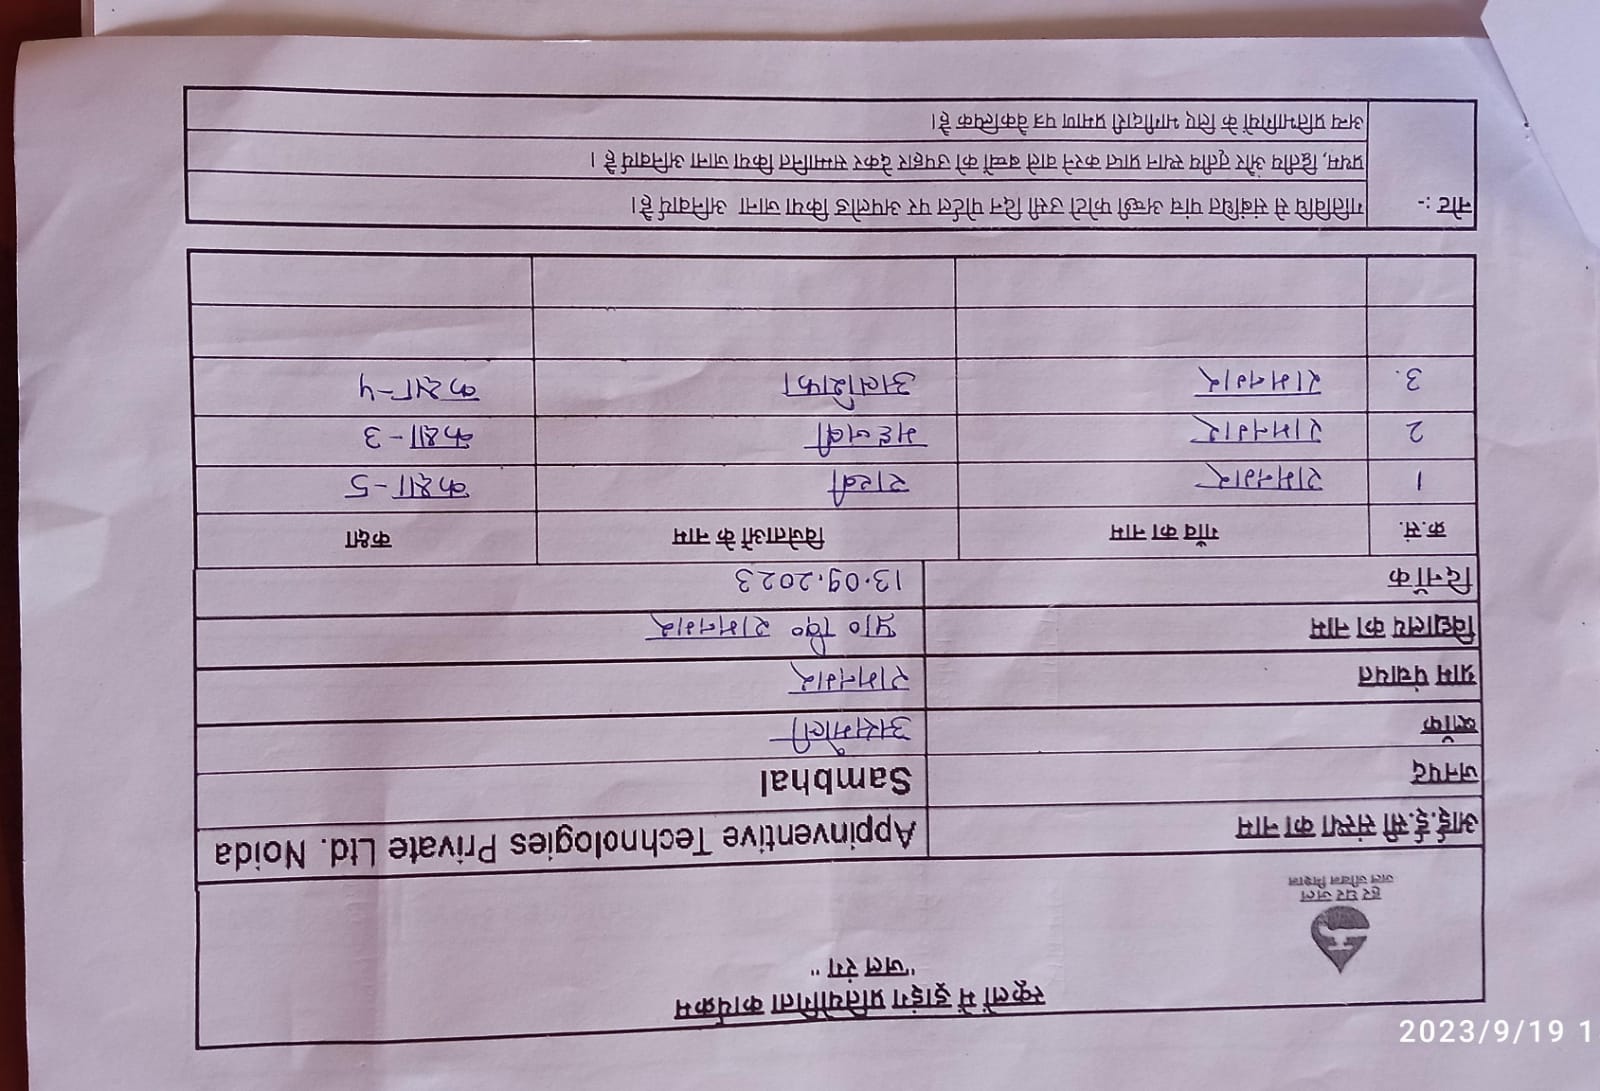 स्कूलों में ड्राइंग प्रतियोगिता कार्यक्रम
"जल रंग"
हर घर जल
जल जीवन मिशन
आई.ई.सी संस्था का नाम Appinventive Technologies Private Ltd. Noida
जनपद Sambhal
ब्लॉक असमोली
ग्राम पंचायत रामनगर
विद्यालय का नाम प्रा० वि० रामनगर
दिनाँक 13.09.2023
क्र.सं. गाँव का नाम विजेताओं के नाम कक्षा
1 रामनगर राखी कक्षा-5
2 रामनगर महजबी कक्षा-3
3. रामनगर अलशिफा कक्षा-4
नोट :- गतिविधि से संबंधित पांच अच्छी फोटो उसी दिन पोर्टल पर अपलोड किया जाना अनिवार्य है।
प्रथम, द्वितीय और तृतीय स्थान प्राप्त करने वाले बच्चों को उपहार देकर सम्मानित किया जाना अनिवार्य है ।
अन्य प्रतिभागियों के लिए भागीदारी प्रमाण पत्र वैकल्पिक है।
2023/9/19 1